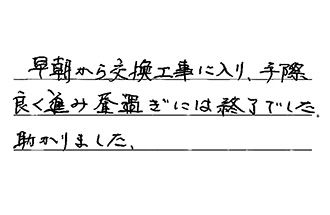 早朝から交換工事に入り、手際
良く進み昼過ぎには終了でした。
助かりました、